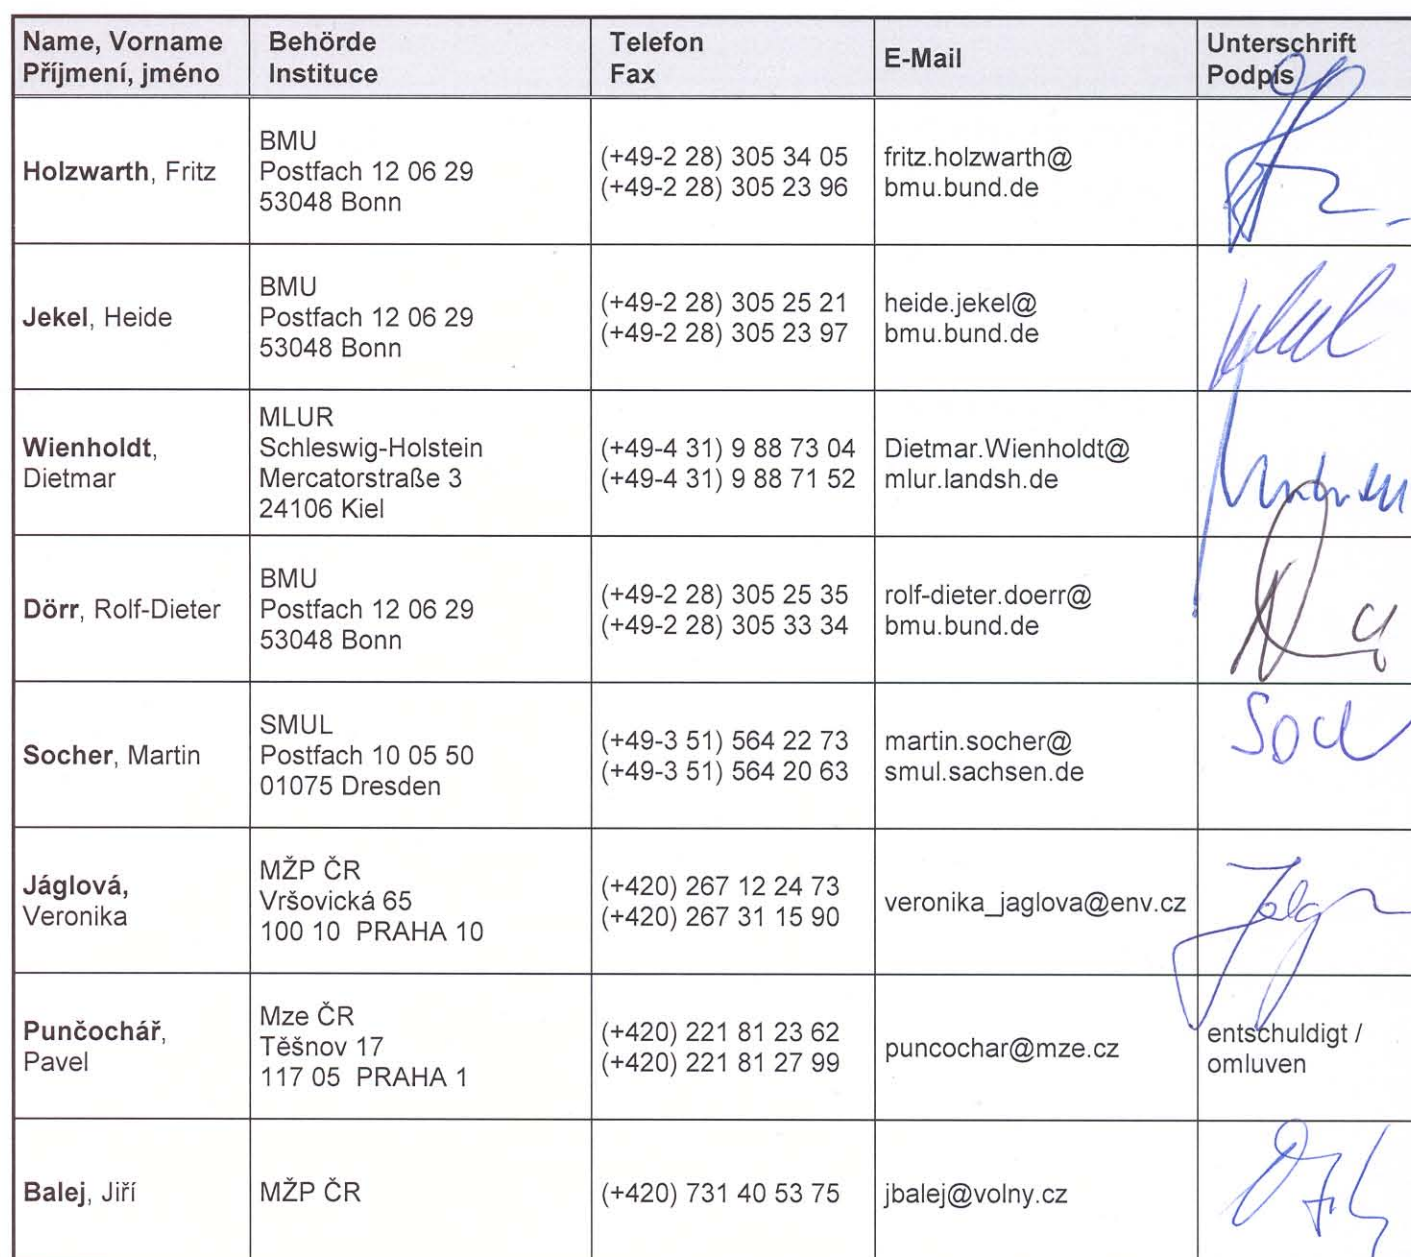 Name, Vorname
Příjmení, jméno
Behörde
Instituce
Telefon
Fax
E-Mail
Unterschrift
Podpis
Holzwarth, Fritz
BMU
Postfach 12 06 29
53048 Bonn
(+49-2 28) 305 34 05
(+49-2 28) 305 23 96
fritz.holzwarth@
bmu.bund.de
Jekel, Heide
BMU
Postfach 12 06 29
53048 Bonn
(+49-2 28) 305 25 21
(+49-2 28) 305 23 97
heide.jekel@
bmu.bund.de
Wienholdt,
Dietmar
MLUR
Schleswig-Holstein
Mercatorstraße 3
24106 Kiel
(+49-4 31) 9 88 73 04
(+49-4 31) 9 88 71 52
Dietmar.Wienholdt@
mlur.landsh.de
Dörr, Rolf-Dieter
BMU
Postfach 12 06 29
53048 Bonn
(+49-2 28) 305 25 35
(+49-2 28) 305 33 34
rolf-dieter.doerr@
bmu.bund.de
Socher, Martin
SMUL
Postfach 10 05 50
01075 Dresden
(+49-3 51) 564 22 73
(+49-3 51) 564 20 63
martin.socher@
smul.sachsen.de
Jáglová,
Veronika
MŽP ČR
Vršovická 65
100 10 PRAHA 10
(+420) 267 12 24 73
(+420) 267 31 15 90
veronika_jaglova@env.cz
Punčochář,
Pavel
Mze ČR
Těšnov 17
117 05 PRAHA 1
(+420) 221 81 23 62
(+420) 221 81 27 99
puncochar@mze.cz
entschuldigt /
omluven
Balej, Jiří
MŽP ČR
(+420) 731 40 53 75
jbalej@volny.cz